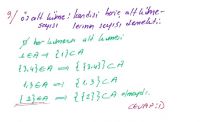 9/ Öz alt küme: kendisi hariç alt küme-
sayısı lerinin sayısı demektir.
∅ her kümenin alt kümesi
1∈A ⇒ {1}⊂A
{3,4}∈A ⇒ {{3,4}}⊂A
1,3∈A ⇒ {1,3}⊂A
{2}∈A ⇒ {{2}}⊂A olmalıydı.
CEVAP: D